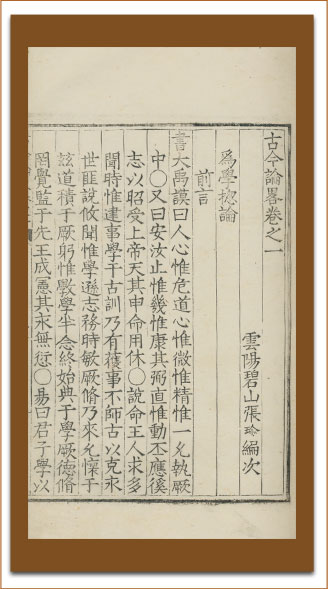 古今論畧卷之一
雲陽碧山張珍編次
為學揔論
前言
書大禹謨曰人心惟危道心惟微惟精惟一允執厥
中○又曰安汝止惟幾惟康其弼直惟動丕應徯
志以昭受上帝天其申命用休○說命王人求多
聞時惟建事學于古訓乃有獲事不師古以克永
世匪說攸聞惟學遜志務時敏厥脩乃來允懷于
茲道積于厥躬惟斆學半念終始典于學厥德脩
罔覺監于先王成憲其永無愆○易曰君子學以